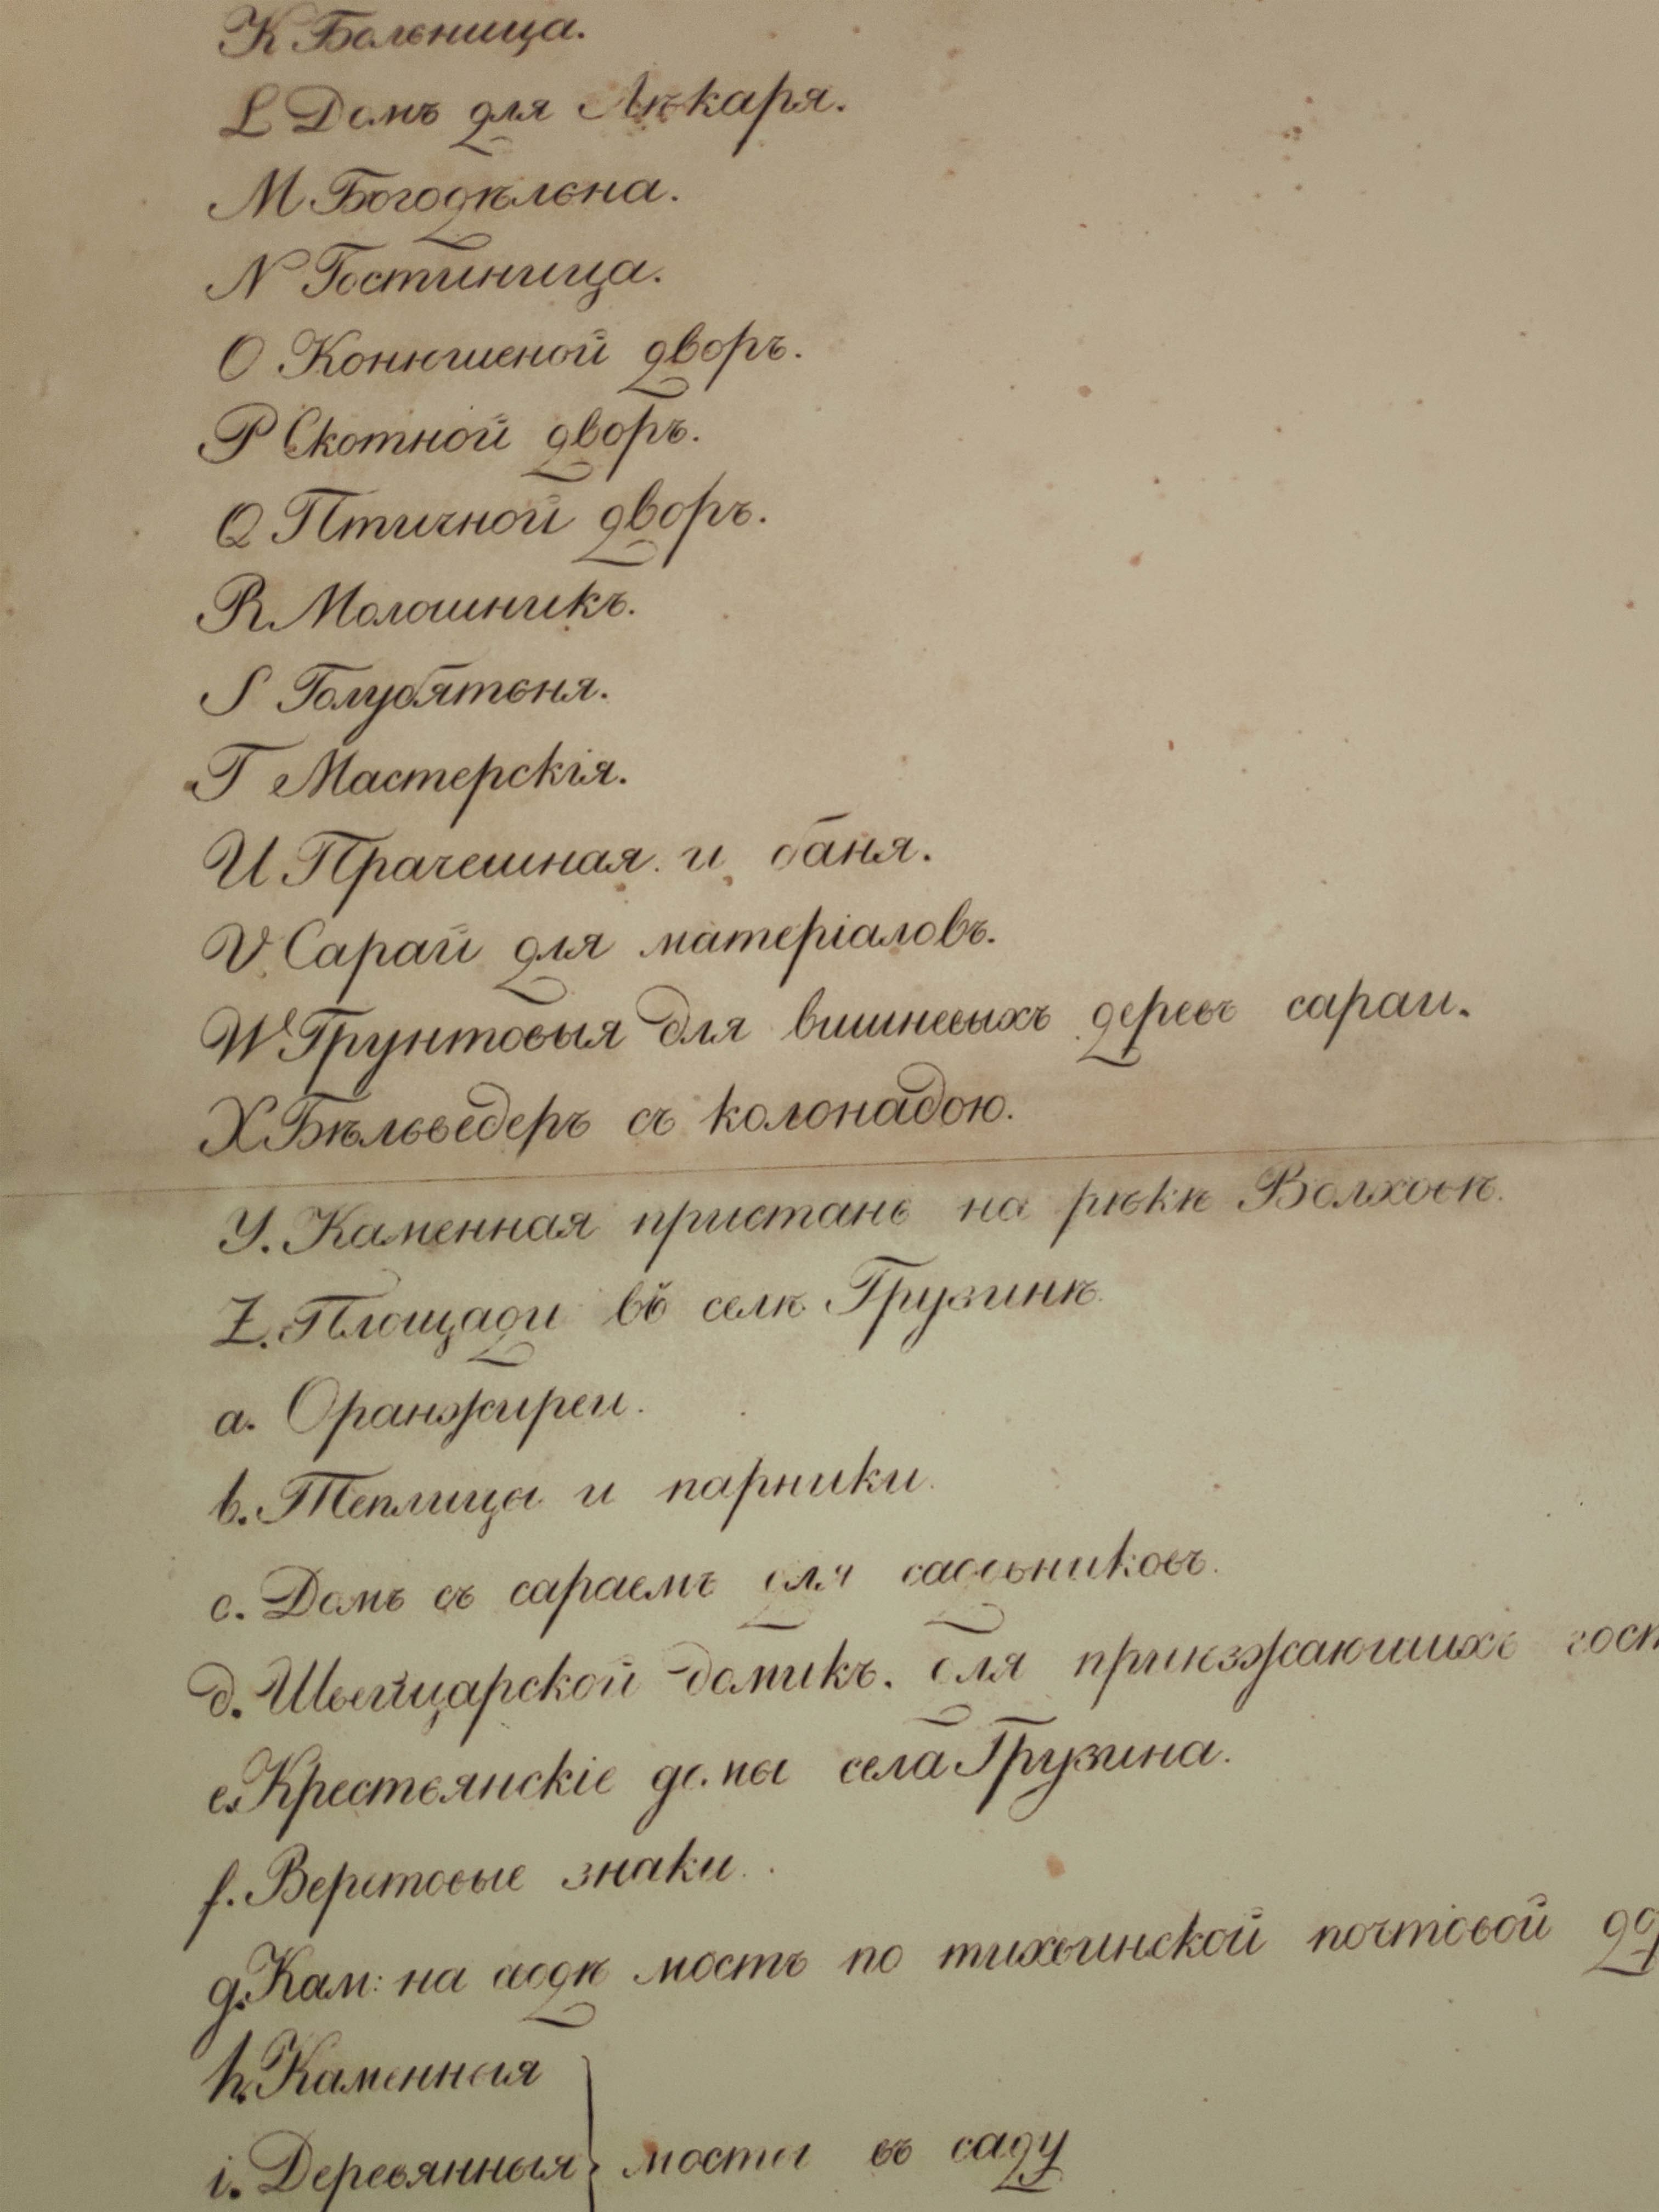 К Больница.
L Домъ для Лѣкаря.
М Богодѣльна.
N Гостиница.
О Конюшеной дворъ.
Р Скотной дворъ.
Q Птичной дворъ.
R Молошникъ.
S Голубятьня.
Т Мастерскія.
U Прачешная и баня.
V Сарай для матеріаловъ.
W Грунтовыя для вишневыхъ деревъ сараи.
X Бѣльведеръ съ колонадою.
Y. Каменная пристань на рѣкѣ Волховѣ.
Z. Площади въ селѣ Грузинѣ.
a. Оранжиреи.
b. Теплица и парники.
c. Домъ съ сараемъ для садовниковъ.
d. Швейцарской домикъ. для приѣзжающихъ гост
e. Крестьянскіе домы села Грузина.
f. Верстовые знаки.
g. Кам: на мостъ по тихвинской почтовой до
h. Каменныя
i. Деревянныя } мосты въ саду